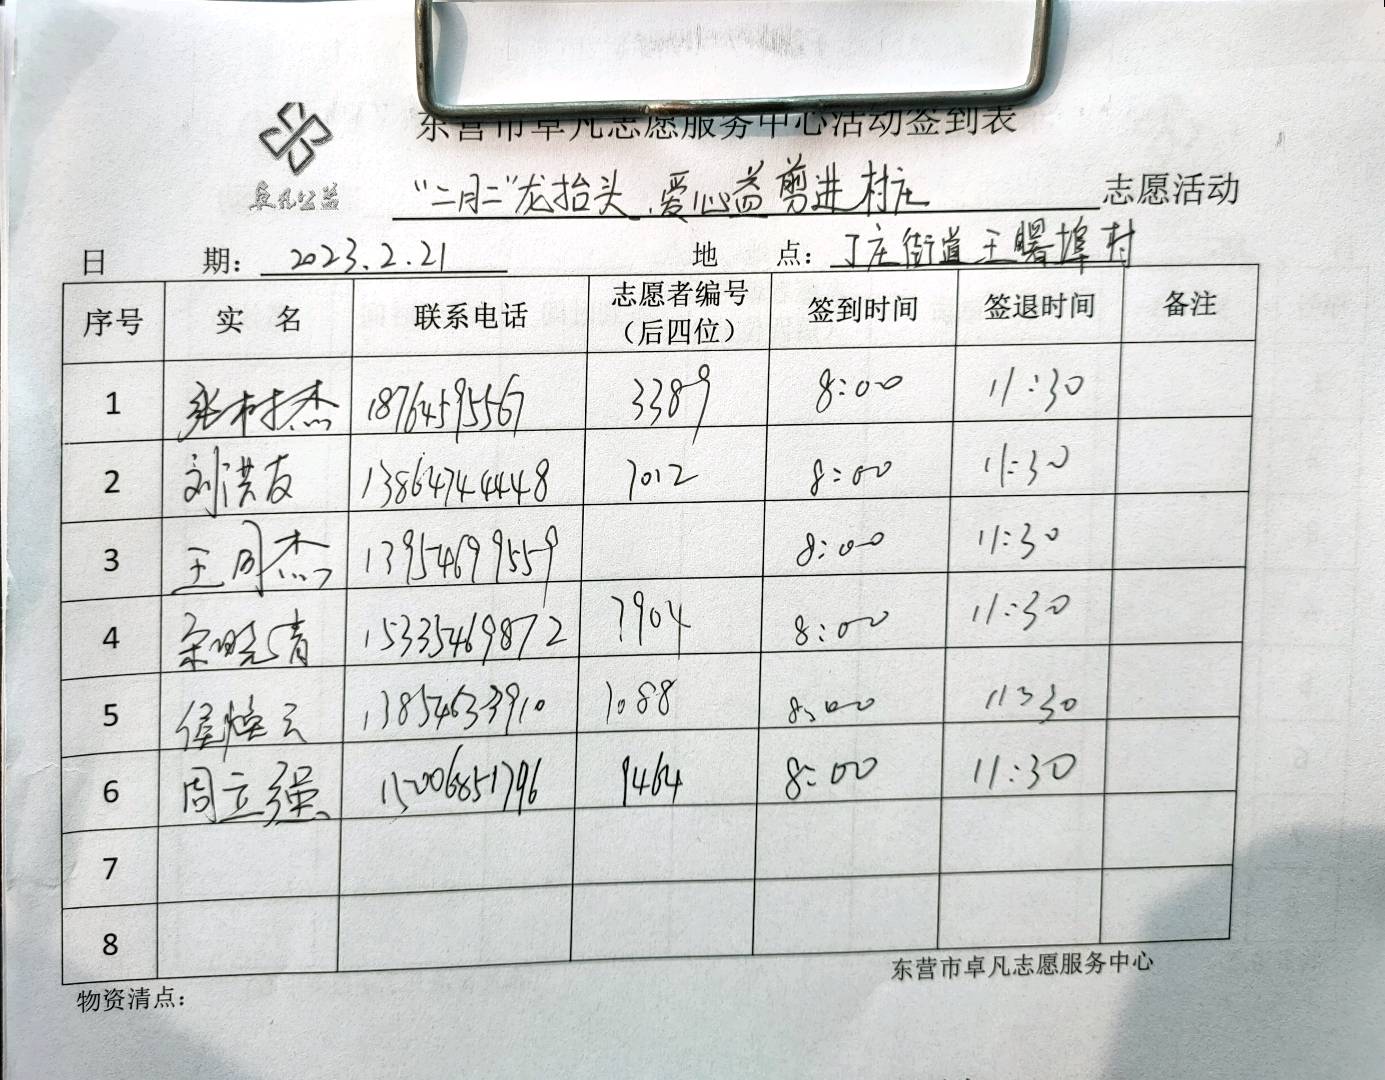 东营市卓凡志愿服务中心活动签到表
卓凡公益
“二月二”龙抬头、爱心益剪进村庄 志愿活动
日 期：2023.2.21 地 点：丁庄街道王署埠村
序号 实 名 联系电话 志愿者编号（后四位） 签到时间 签退时间 备注
1 张树杰 18764595567 3389 8:00 11:30
2 刘洪友 13864744448 7012 8:00 11:30
3 王同杰 13954699559 8:00 11:30
4 宋晓清 15335469872 7904 8:00 11:30
5 侯焕云 13854633910 1088 8:00 11:30
6 周立强 15006851796 9464 8:00 11:30
7
8
东营市卓凡志愿服务中心
物资清点：